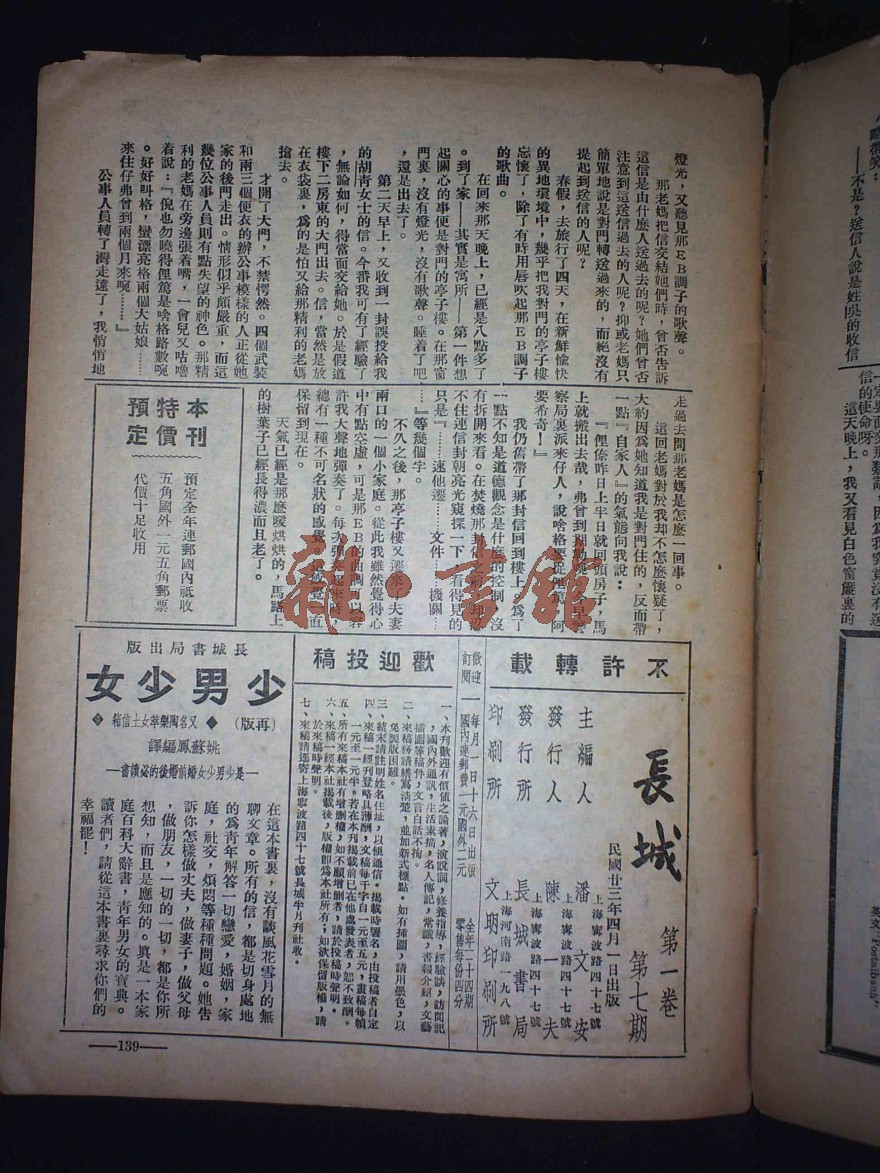 燈光，又聽見那EB調子的歌聲。
那老媽把信交結她們時，曾否告訴
這信是由什麼人送過去的呢？她們曾否
注意到這送信過去的人呢？抑或老媽只
簡單地說是對門轉送過來的，而絕沒有
提起到送信的人呢？
春假，去旅行了四天，在新鮮愉快
的異地環境中，幾乎把我對門的亭子樓
忘懷了，除了有時用唇吹起那EB調子
的歌曲。
在回來那天晚上，已經是八點多了
。到了家——其實是寓所——第一件想
起關心的事便是對門的亭子樓。在那窗
門裏，沒有燈光，沒有歌聲。睡着了吧
，還是出去了。
第二天早上，又收到一封誤投給我
的胡靑女士的信。今番我可有了經驗了
，無論如何，得當面交給她。於是假道
樓下二房東的大門出去。信，當然是放
在衣袋裏，爲的是怕又給那精利的老媽
搶去。
才開了大門，不禁愕然。四個武裝
和兩三個便衣的辦公事模樣的人正從她
家的後門走出。情形似乎頗嚴重，而這
幾位公事人員則有點失望的神色。那精
利的老媽在旁邊張着嘴，一會兒又咕嚕
着說：『倪也勿曉得俚篤是啥格路數啘
。好好叫格，蠻漂亮格兩個大姑娘……
來住仔弗曾到兩個月來啘……』
公事人員轉了灣走遠了，我悄悄地
走過去問那老媽是怎麼一回事。
這回老媽對於我却不怎麼懷疑了，
大約因爲她知道我是對門住的，反而帶
一點『自家人』的氣態向我說：
『俚傣昨日上半日就回頭房子，馬
上就搬出去哉，弗曾到
察局裏派來仔人，說啥格要捉俚篤，阿
要希奇！』
我仍舊帶了那封信回到樓上，爲了
一點不知是道德觀念是什麼的控制，沒
有拆開來看。在焚燒那封信之前，却忍
不住連信封朝亮光窺探一下，看得見的
只是『……速他遷……文件……機關…
…』等幾個字。
不久之後，那亭子樓又遷來了夫妻
兩口的一個小家庭。從此我雖然覺得心
中有點空虛，可是那EB的曲調可以容
許我大聲地彈奏了。每次彈奏起來時，
總有一種不可名狀的感覺，這感覺一直
保留到現在。
天氣已經是那麼暖烘烘的，馬路上
的樹葉子已經長得濃而且老了。
本刊
特價
預定
預定全年連郵國內祇收
五角國外一元五角郵票
代價十足收用
不許轉載
長城
第一卷
第七期
民國廿三年四月一日出版
主編人 潘文安
上海寗波路四十七號
發行人 陳一夫
上海寗波路四十七號
發行所 長城書局
上海河南路一九八號
印刷所 文明印刷所
歡迎訂閱
每月一日十六日出版
全年二十四期
國內連郵費一元國外二元
零售每份四分
歡迎投稿
一、本刊歡迎有價值之論著，演說詞，修養指導，經驗談，訪問記
，國內外通訊，生活素描，名人傳記，常識，書報介紹，文藝
插圖等稿件，文言白話不拘。
二、來稿務請繕寫清楚，並加新式標點。如有揷圖，請用墨色，以
免製版困難。
三、結末請註明姓名住址，以便通信。揭載時署名，由投稿者自定
四、來稿一經刊登略具薄酬，文稿每千字自一元至五元，畫稿每幀
一元至一元半。若在本刊揭載前已在他處發表者，恕不致酬。
五、所有來稿本社有增删權，如不願增删者，請於投稿時聲明。
六、來稿一經本社揭載後，版權卽爲本社所有；如欲保留版權，請
於來稿時聲明。
七、來稿請逕寄上海寗波路四十七號長城半月刊社收。
長城書局出版
少男少女
（再版）◆又名陶樂萃女士信箱◆
姚蘇鳳編譯
—是少男少女婚前婚後的必讀書—
在這本書裏，沒有談風花雪月的無
聊文章。所有的信，都是切身處地
的爲青年解答一切戀愛，婚姻，家
庭，社交，煩悶等種種問題。她告
訴你怎樣做丈夫，做妻子，做父母
，做朋友，一切的一切，都是你所
想知，而且是應知的。眞是一本家
庭百科大辭書，青年男女的寶典。
讀者們，請從這本書裏尋求你們的
幸福罷！
—139—
雜·書館
——不是？送信人說是姓吳的收信
信的使命呀。
這天晚上，我又看見白色窗簾裏的